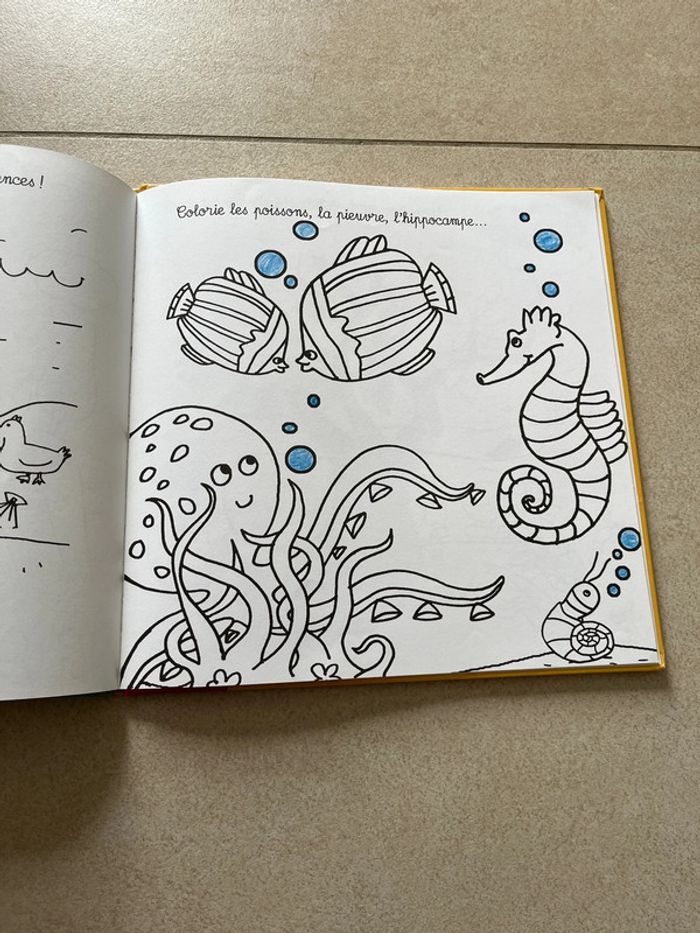 Colorie les poissons, la pieuvre, l'hippocampe...